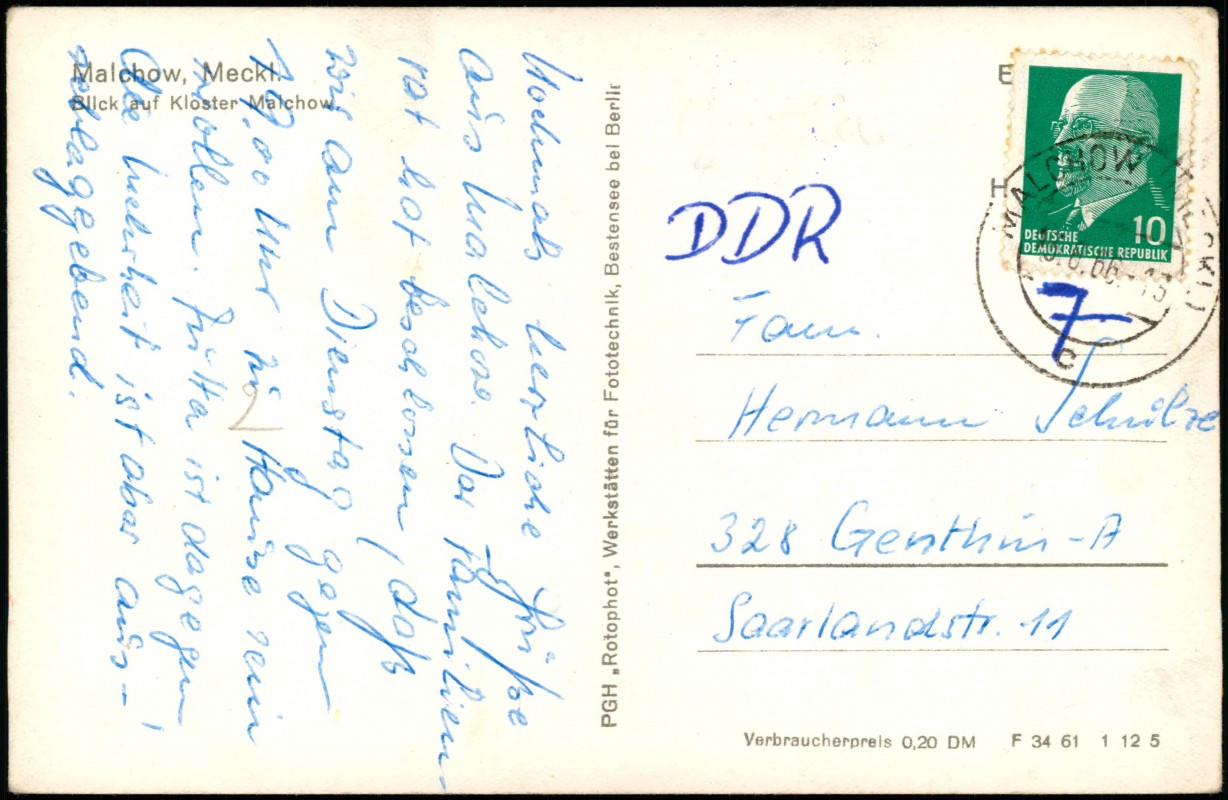 Malchow, Meckl.
Blick auf Kloster Malchow
Nochmals herzliche Grüße
aus Malchow. Der Familien-
rat hat beschlossen, daß
wir am Dienstag gegen
19,00 Uhr zu Hause sein
wollen. Jutta ist dagegen!
Die Mehrheit ist aber aus-
schlaggebend.
PGH „Rotophot", Werkstätten für Fototechnik, Bestensee bei Berlin
E
H
DEUTSCHE
DEMOKRATISCHE REPUBLIK
10
MALCHOW (MECKL)
.6.66.-13
c
DDR
7
Fam.
Hermann Schulze
328 Genthin-A
Saarlandstr. 11
Verbraucherpreis 0,20 DM F 34 61 1 12 5